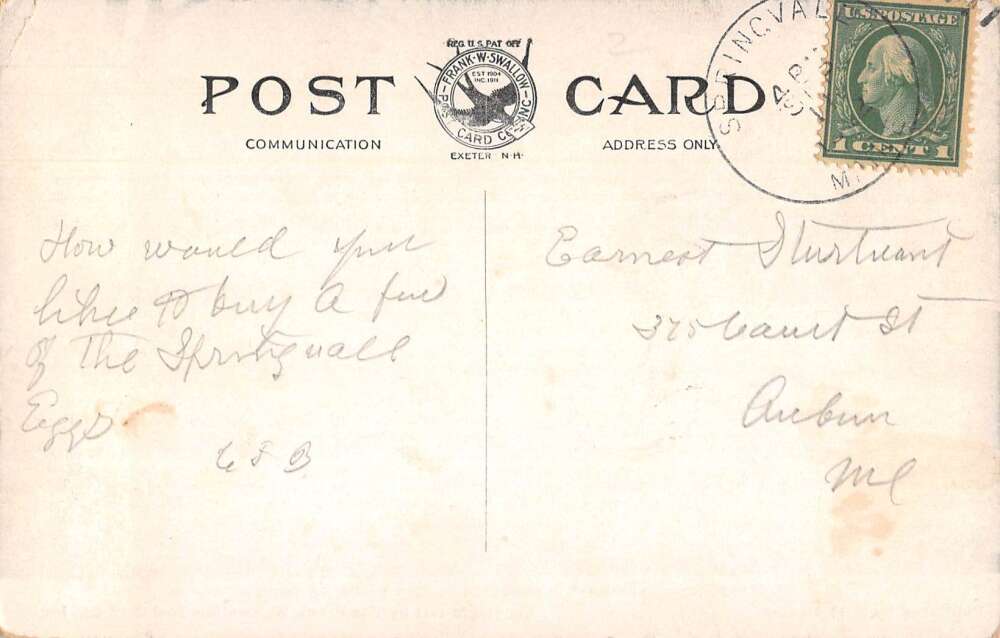 REG. U.S. PAT OFF
FRANK·W·SWALLOW
EST 1904
INC. 1911
POST CARD CO. INC.
EXETER N·H·
POST CARD
COMMUNICATION
ADDRESS ONLY.
SPRINGVAL
U.S. POSTAGE
1 CENT 1
How would you
like to buy a few
of the Springvale
Eggs
Earnest Sturtevant
Court St
Auburn
Me